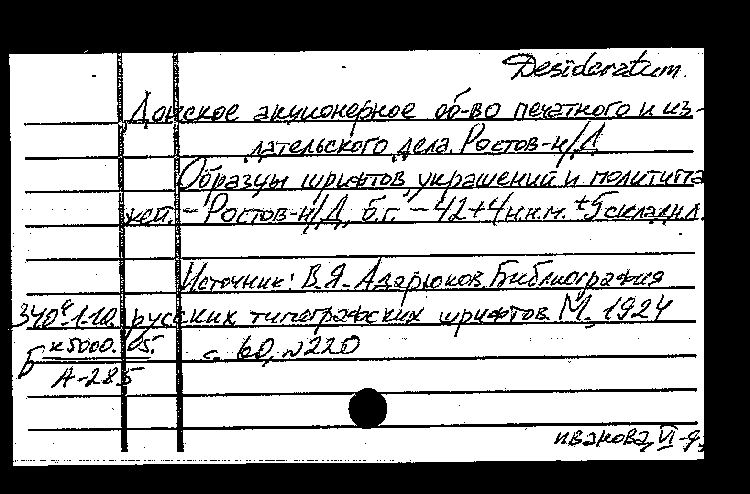 Desideratum.
Донское акционерное об-во печатного и из-
дательского дела. Ростов-н/Д
Образцы шрифтов, украшений и политипа
жей. – Ростов-н/Д, б.г. – 42+4 н.н.м. +5 складн л.
Источник: В.Я. Адарюков. Библиография
русских типографских шрифтов. М., 1924
с. 60, №220
к 5000. 05.
Б А-285
Иванова, VI-